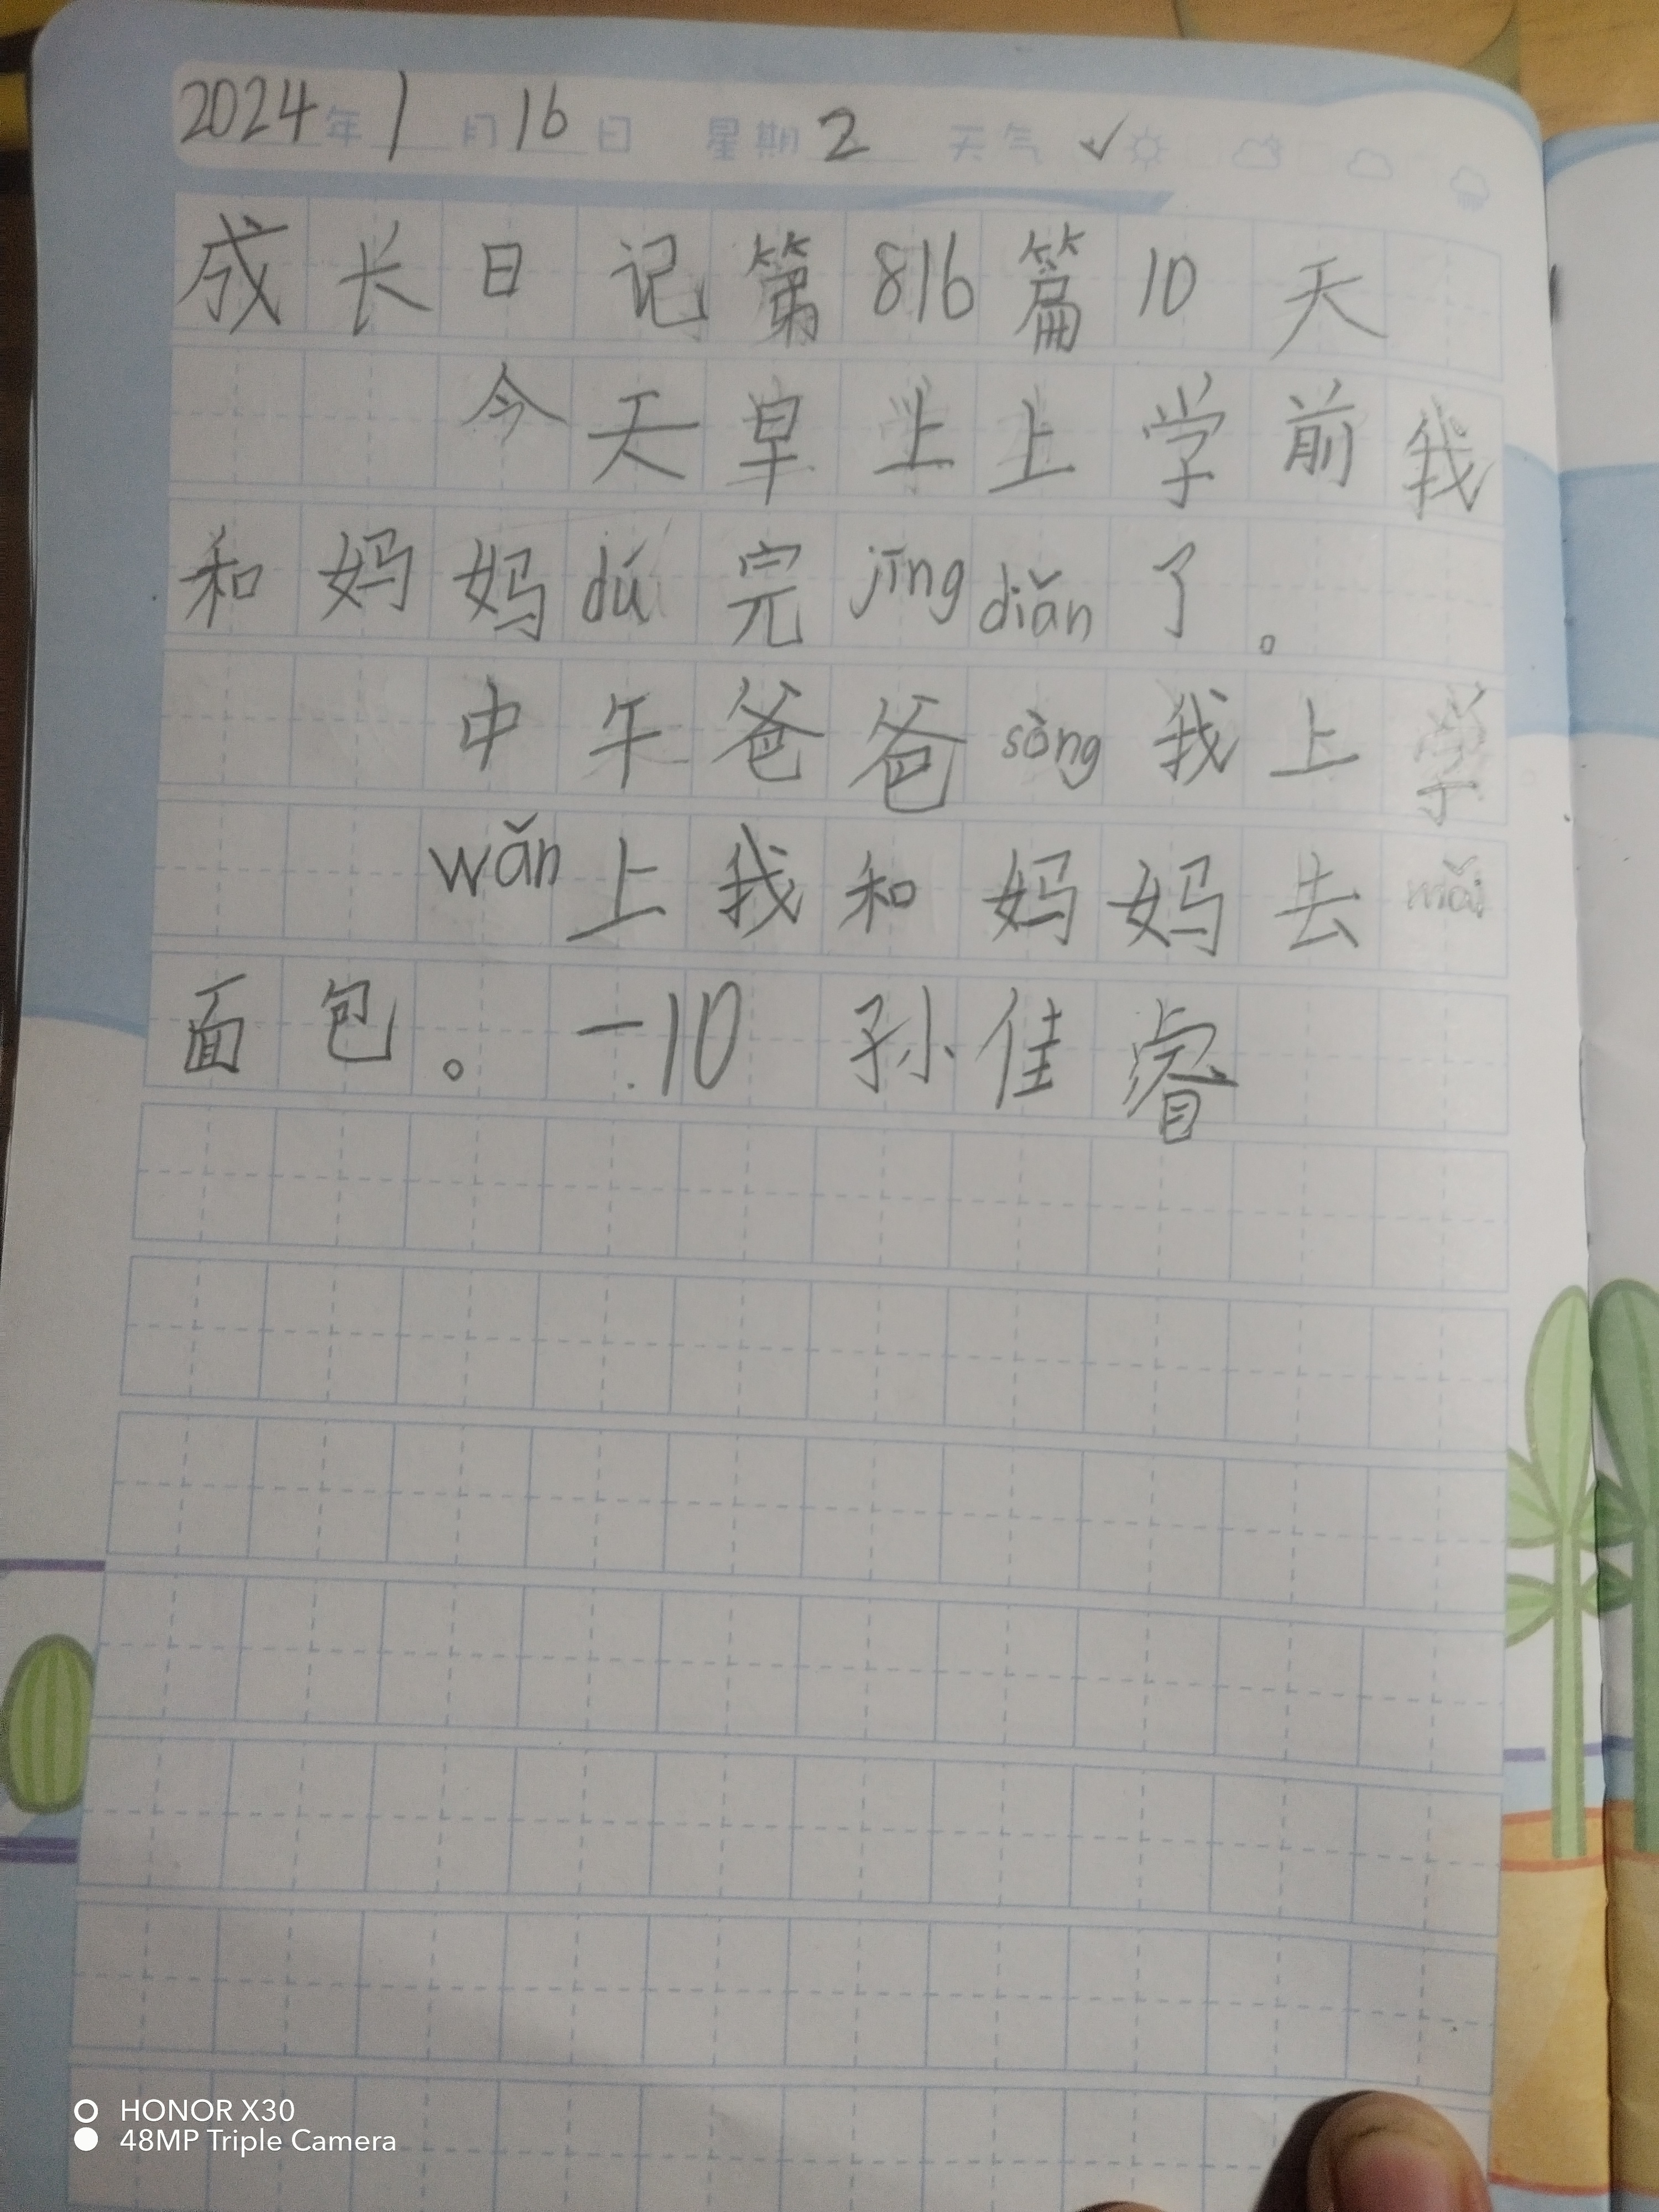 2024年1月16日 星期2 天气 ✓
成长日记第816篇10天
今天早上上学前我
和妈妈dú完jīngdiǎn了。
中午爸爸sòng我上学
wǎn上我和妈妈去mǎi
面包。-10 孙佳睿
HONOR X30
48MP Triple Camera